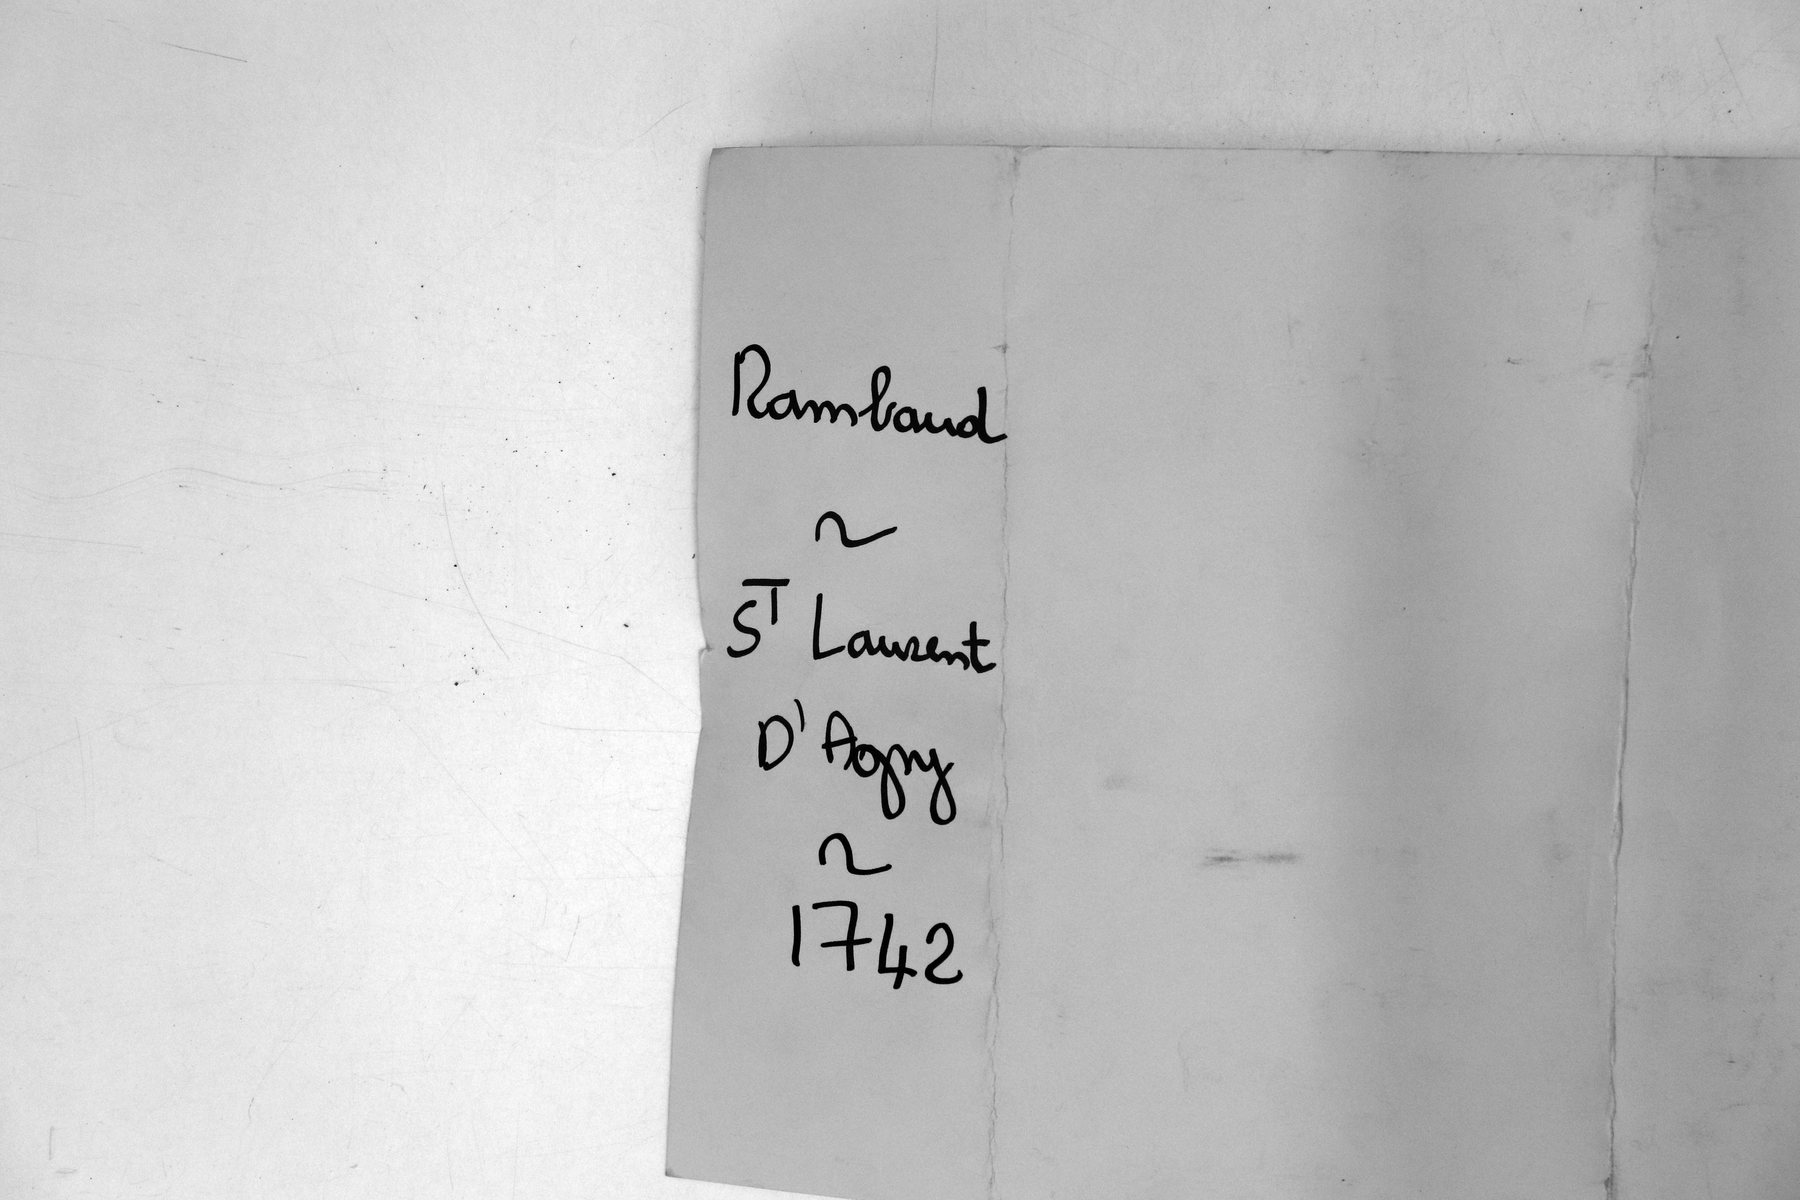 Rambaud
~
ST Laurent
D'Agny
~
1742